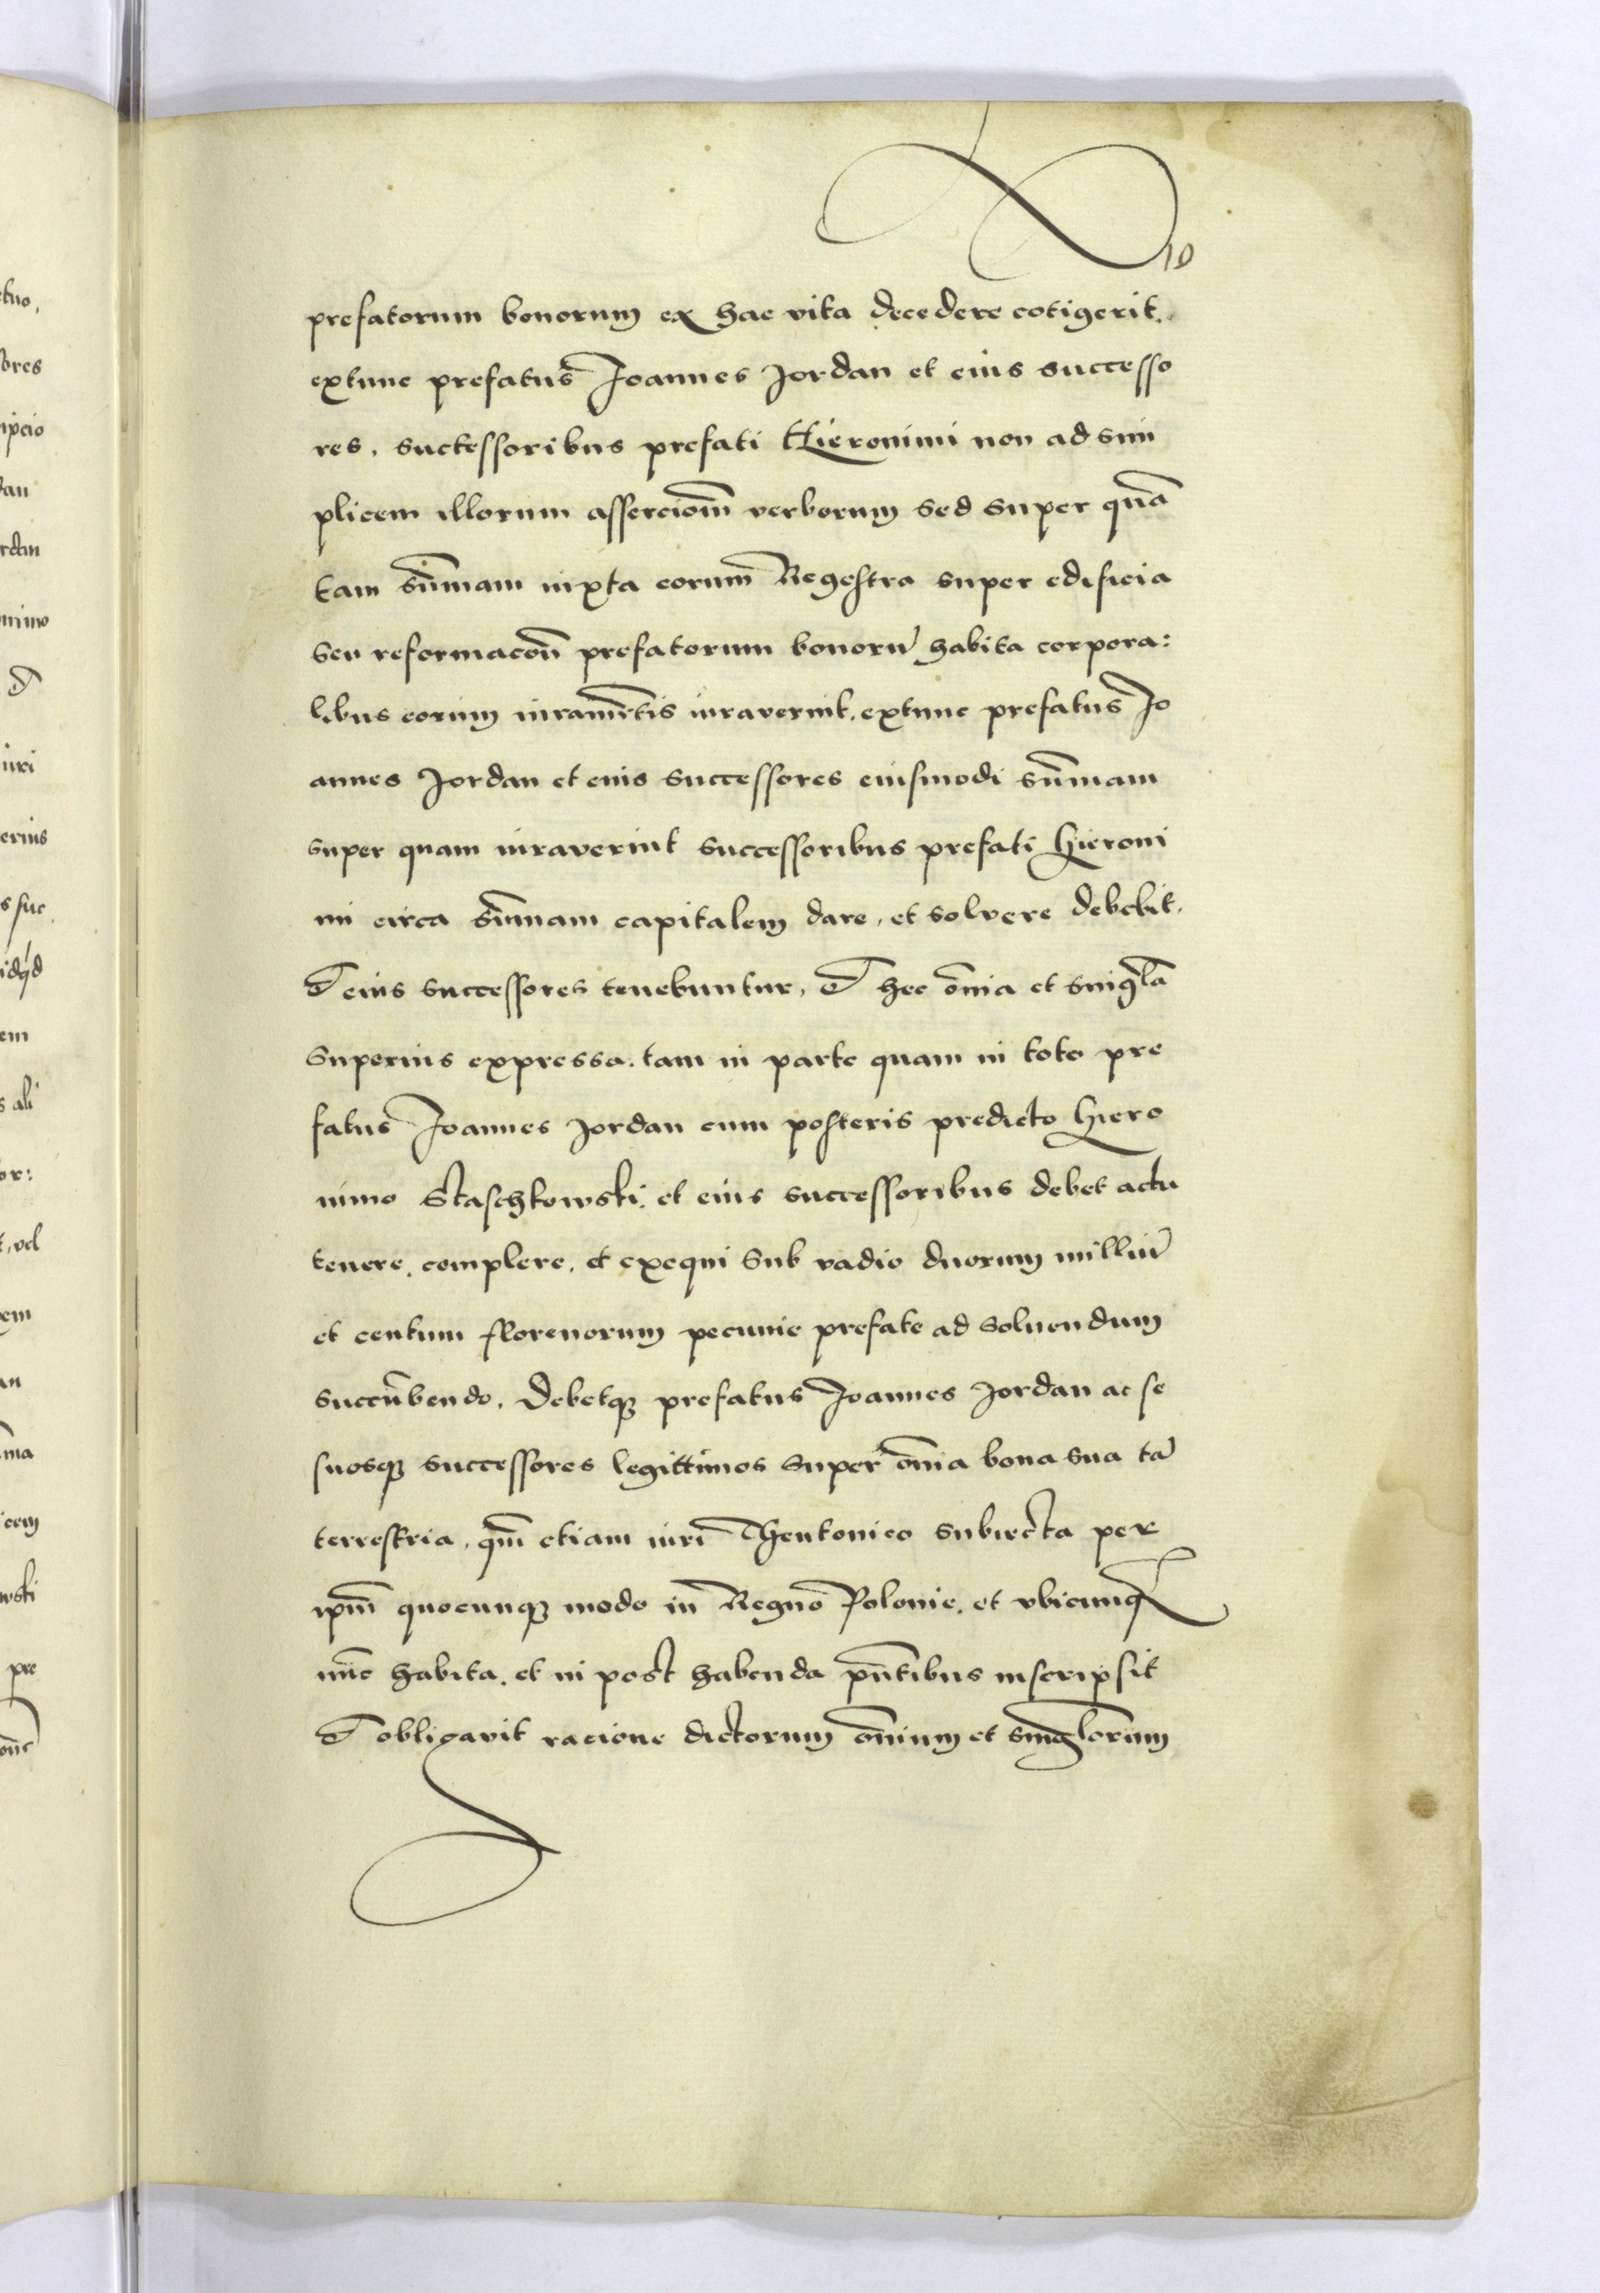 10
prefatorum bonorum ex hac vita decedere cõtigerit.
extunc prefatus Joannes Jordan et eius successo
res, successoribus prefati Hieronimi non ad sim
plicem illorum assercioñm verborum sed super quã
tam sum̃mam iuxta eorum Regestra super edificia
seu reformacoñ prefatorum bonorũ habita corpora:
libus eorum iuramẽtis iuraverint, extunc prefatus Jo
annes Jordan et eius successores eiusmodi sum̃mam
super quam iuraverint successoribus prefati Hieroni
mi circa sum̃mam capitalem dare, et solvere debebit.
Et eius successores tenebuntur, Et hec om̃ia et singl̃a
superius expressa. tam in parte quam in toto pre
fatus Joannes Jordan cum posteris predicto Hiero
nimo Staschkowski. et eius successoribus debet actu
tenere, complere, et exequi sub vadio duorum milliũ
et centum florenorum pecunie prefate ad soluendum
succũbendo. Debetqꝫ prefatus Joannes Jordan ac se
suosqꝫ successores legittimos super om̃ia bona sua tã
terrestria, qm̃ etiam iuri Theutonico subiecta per
ipm̃ quocunqꝫ modo in Regno Polonie. et vbicunqꝫ
nũc habita. et in post habenda pñtibus inscripsit
Et obligavit racione dictorum om̃ium et singl̃orum
etuo,
ores
ipcio
dan
rdan
nimo
Et
iuri
erius
s suc
idqd
em
s ali
or:
t, vel
em
an
ma
icem
wski
pre